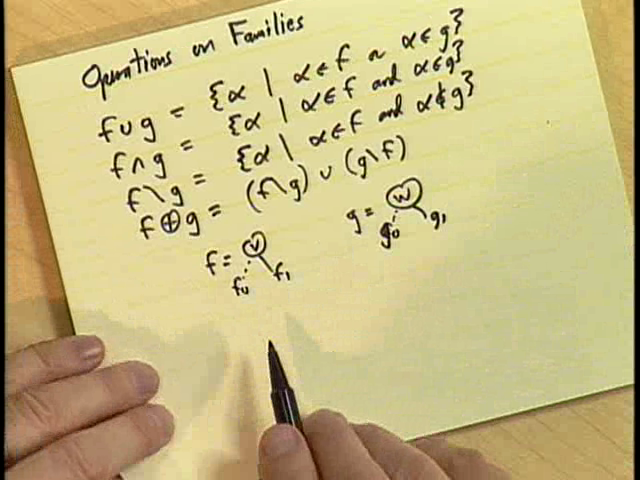 Operations on Families
f∪g = {α | α∈f or α∈g}
f∩g = {α | α∈f and α∈g}
f\g = {α | α∈f and α∉g}
f⊕g = (f\g) ∪ (g\f)
f = v f0 f1
g = w g0 g1